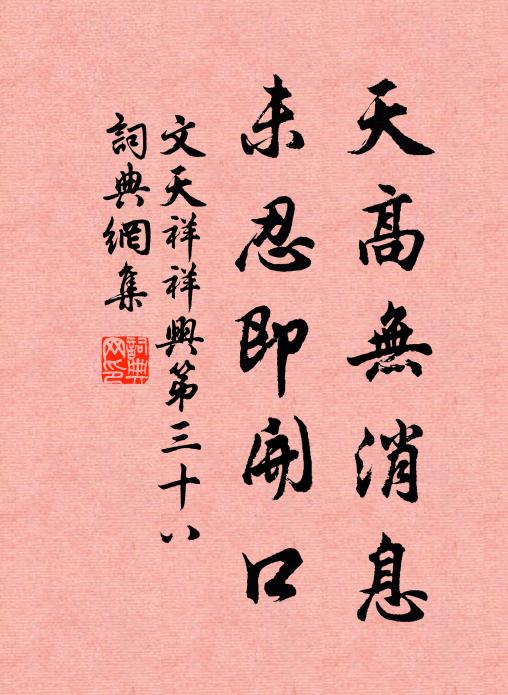 天高無消息
未忍即開口
文天祥祥興第三十八
詞典網集
詞典網印